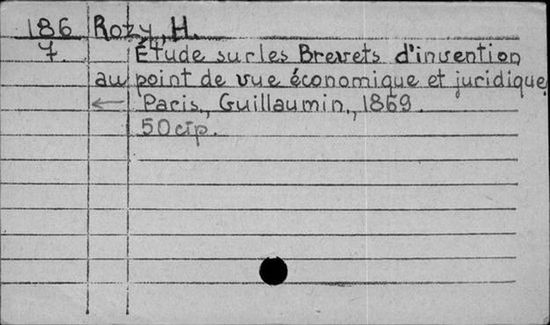 186 Rozy, H.
7. Étude sur les Brevets d'invention
au point de vue économique et juridique
Paris, Guillaumin, 1869.
50 cip.